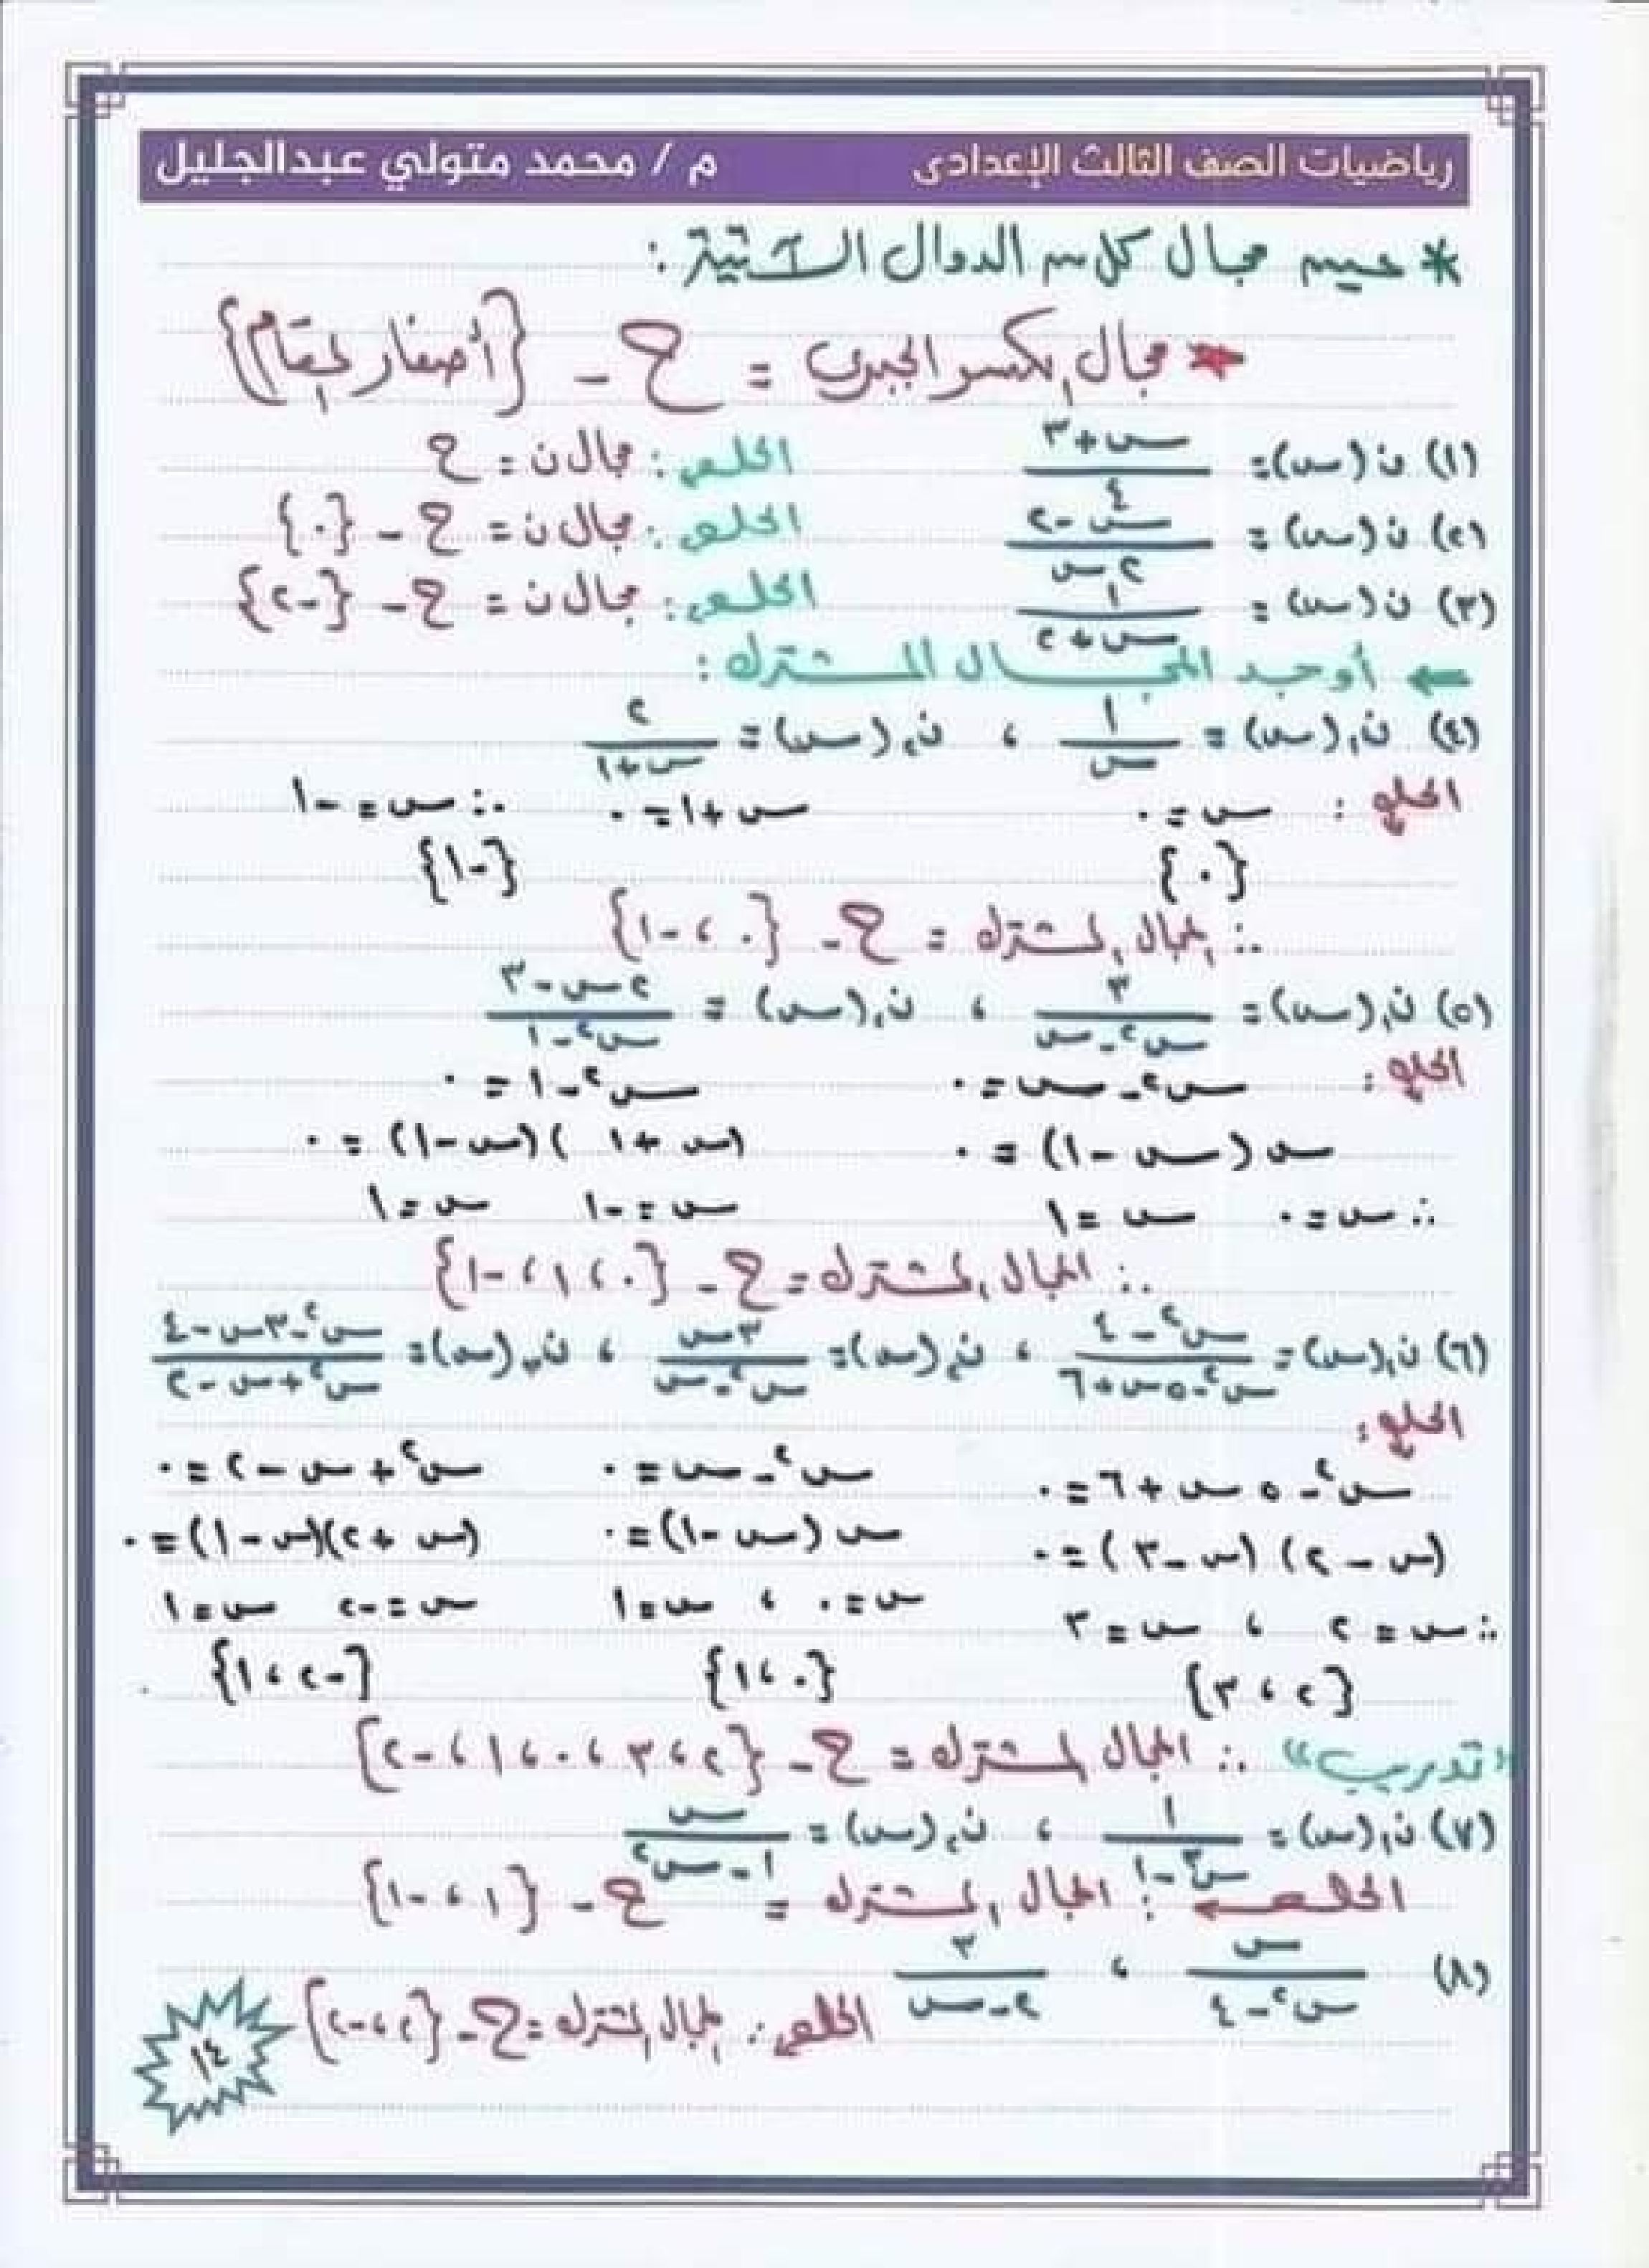 رياضيات الصف الثالث الإعدادى م / محمد متولي عبدالجليل
* عين مجال كل من الدوال الآتية :
مجال الكسر الجبرى = ح - {أصفار المقام}
(١) ن(س) = (س+٣)/٤ الحل : مجال ن = ح
(٢) ن(س) = (س-٢)/(٢س) الحل : مجال ن = ح - {٠}
(٣) ن(س) = ١/(س+٢) الحل : مجال ن = ح - {-٢}
← أوجد المجال المشترك :
(٤) ن١(س) = ١/س ، ن٢(س) = ٢/(س+١)
الحل : س = ٠ س+١ = ٠ ∴ س = -١
{٠} {-١}
∴ المجال المشترك = ح - {٠ ، -١}
(٥) ن١(س) = ٣/(س²-س) ، ن٢(س) = (٢س-٣)/(س²-١)
الحل : س²-س = ٠ س²-١ = ٠
س(س-١) = ٠ (س+١)(س-١) = ٠
∴ س = ٠ س = ١ س = -١ س = ١
∴ المجال المشترك = ح - {٠ ، ١ ، -١}
(٦) ن١(س) = (س²-٤)/(س²-٥س+٦) ، ن٢(س) = ٣س/(س²-س) ، ن٣(س) = (س²-٣س-٤)/(س²+س-٢)
الحل :
س²-٥س+٦ = ٠ س²-س = ٠ س²+س-٢ = ٠
(س-٢)(س-٣) = ٠ س(س-١) = ٠ (س+٢)(س-١) = ٠
∴ س = ٢ ، س = ٣ س = ٠ ، س = ١ س = -٢ س = ١
{٢ ، ٣} {٠ ، ١} {-٢ ، ١}
∴ المجال المشترك = ح - {٢ ، ٣ ، ٠ ، ١ ، -٢}
«تدريب»
(٧) ن١(س) = ١/(س³-١) ، ن٢(س) = س/(١-س²)
الحل : المجال المشترك = ح - {١ ، -١}
(٨) س/(س²-٤) ، ٣/(٢-س) الحل : المجال المشترك = ح - {٢ ، -٢}
١٤